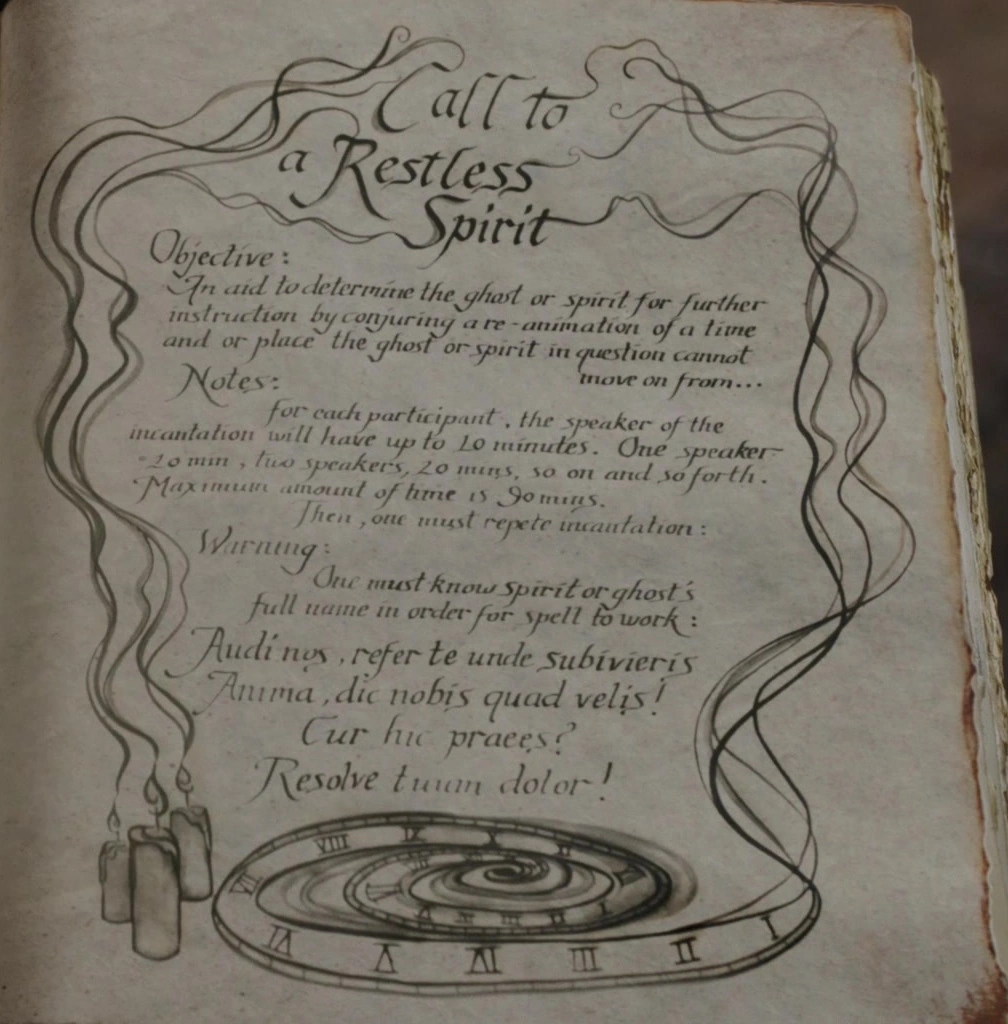 Call to
a Restless
Spirit
Objective:
An aid to determine the ghost or spirit for further
instruction by conjuring a re-animation of a time
and or place the ghost or spirit in question cannot
move on from...
Notes:
for each participant, the speaker of the
incantation will have up to 10 minutes. One speaker
-10 min, two speakers, 20 mins, so on and so forth.
Maximum amount of time is 90 mins.
Then, one must repete incantation:
Warning:
One must know spirit or ghost's
full name in order for spell to work:
Audi nos, refer te unde subivieris
Anima, dic nobis quad velis!
Cur hic praees?
Resolve tuum dolor!
VIII IX X
VII
I
II
III
V